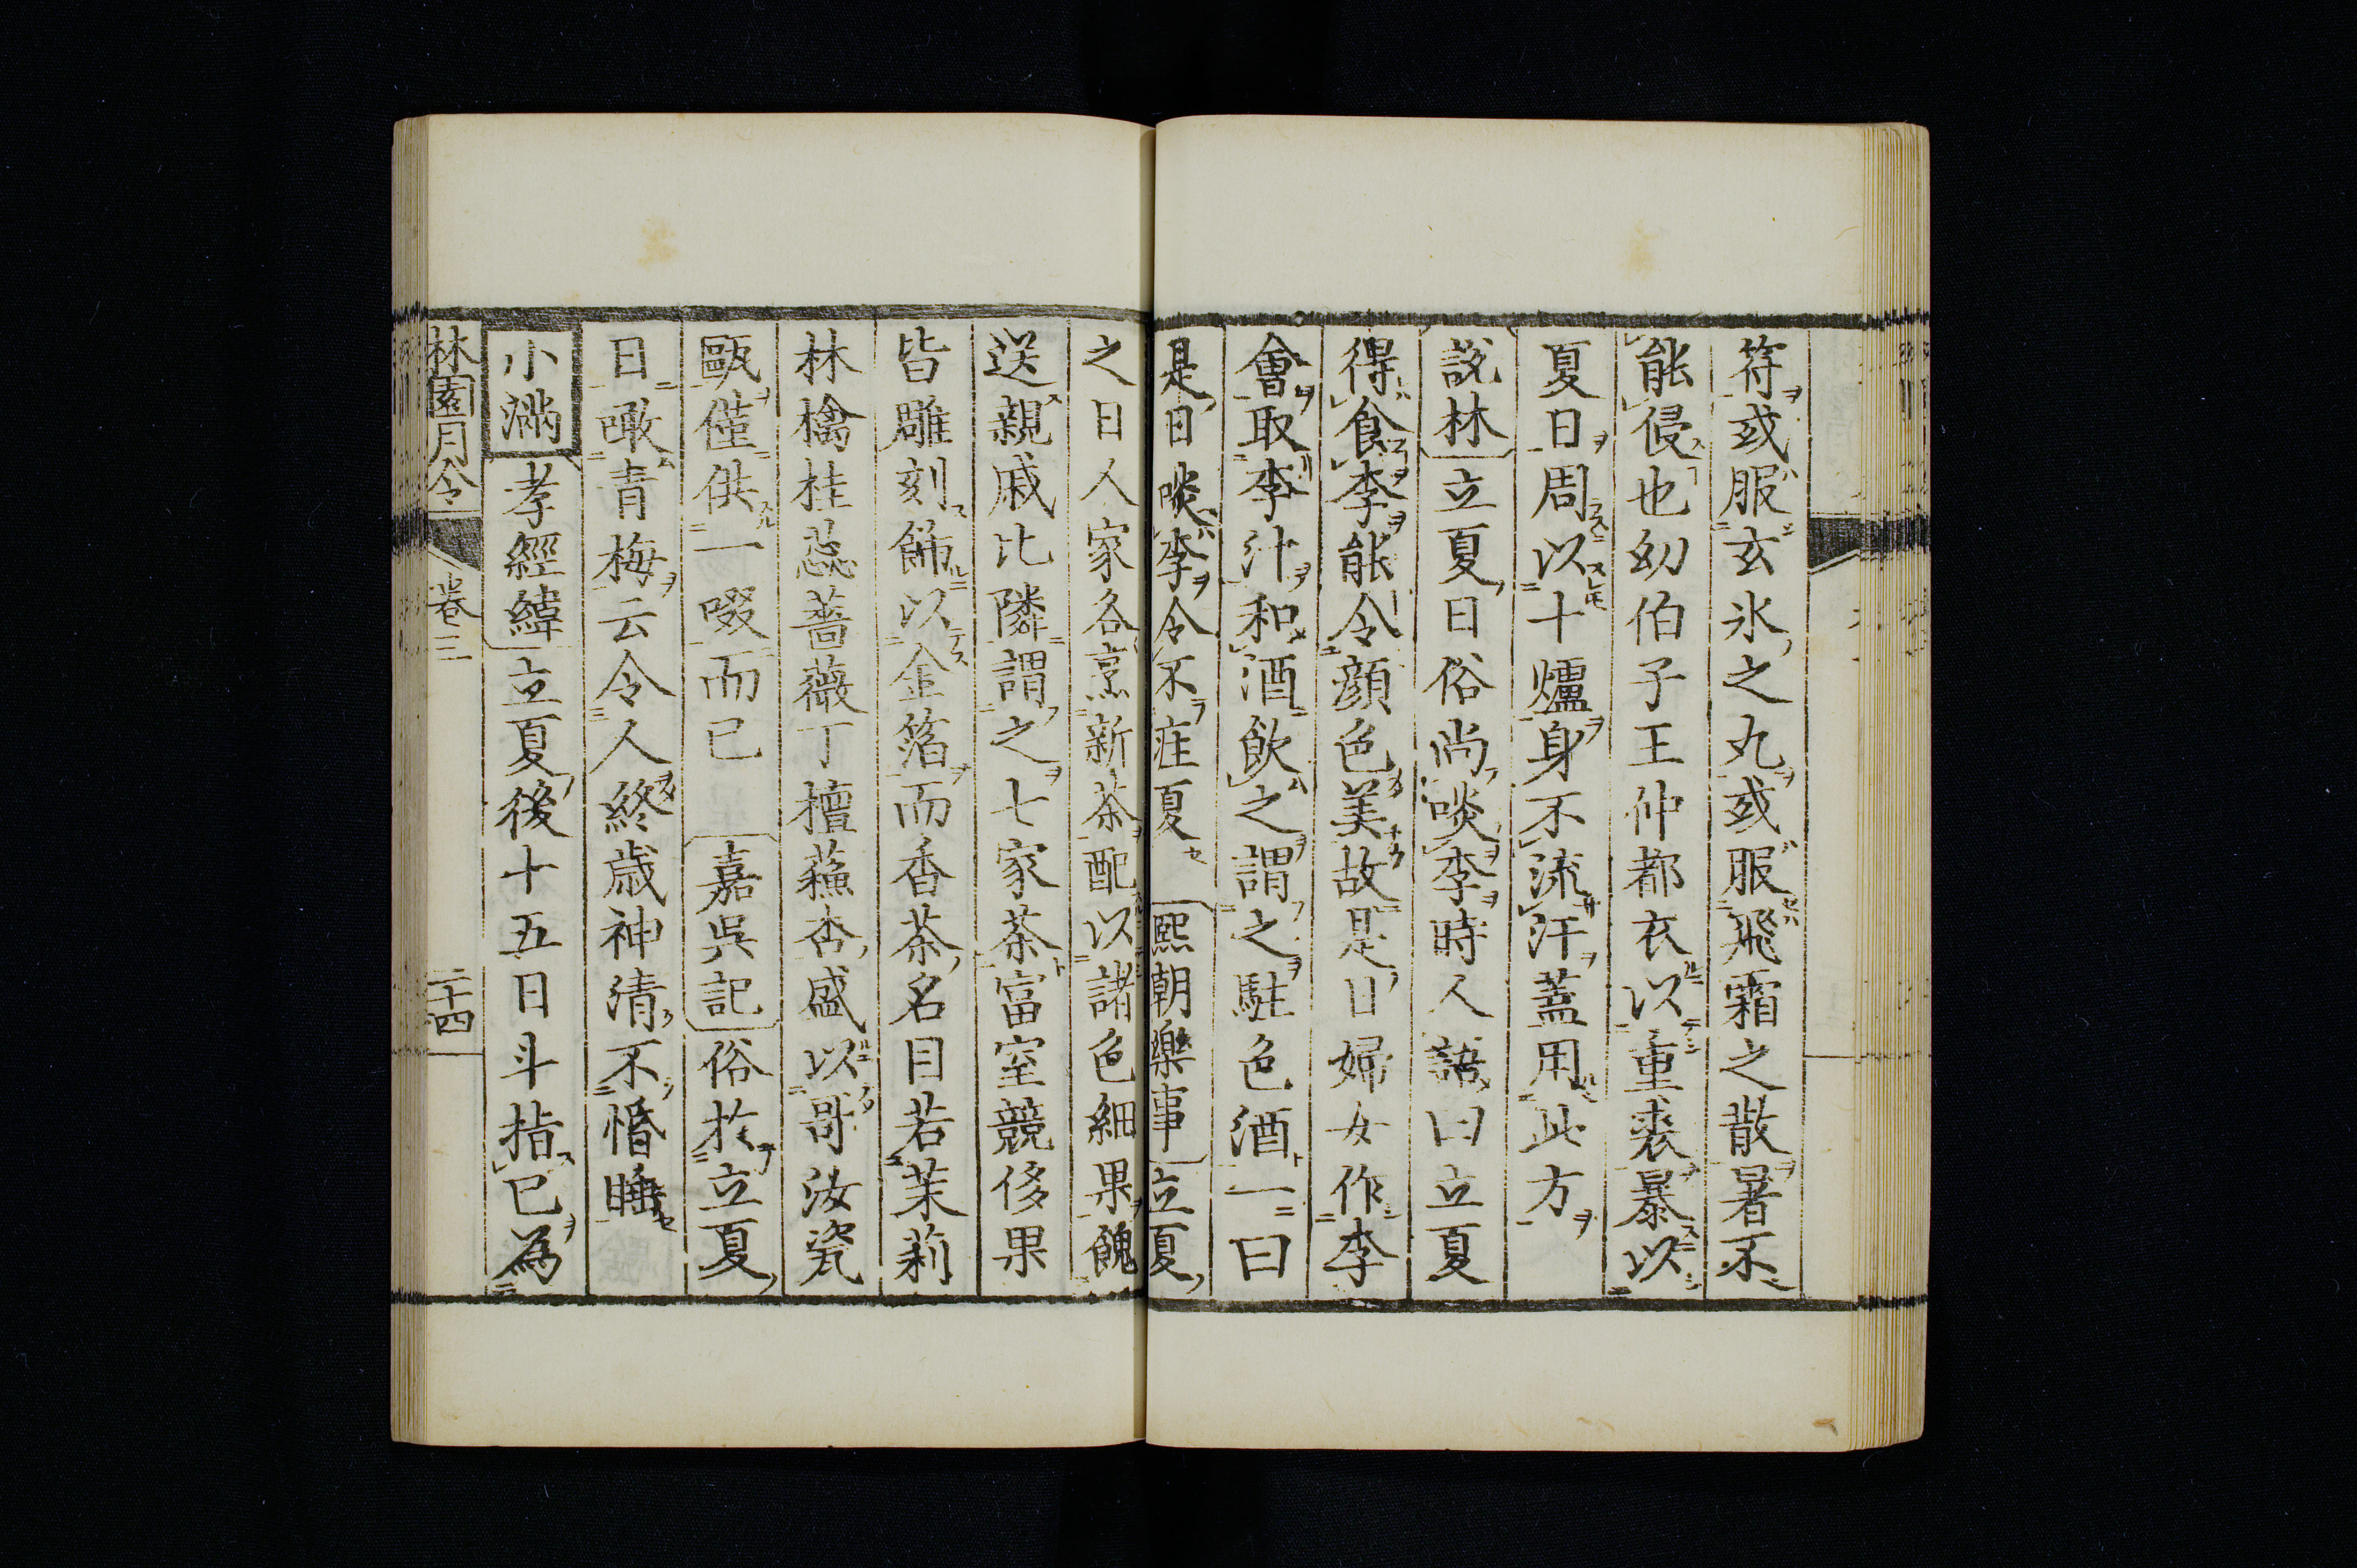 符或服玄氷之丸或服飛霜之散暑不
能侵也幼伯子王仲都衣以重裘暴以
夏日周以十爐身不流汗蓋用此方
説林立夏日俗尚啖李時人語曰立夏
得食李能令顔色美故是日婦女作李
會取李汁和酒飲之謂之駐色酒一曰
是日啖李令不疰夏熙朝樂事立夏
之日人家各烹新茶配以諸色細果餽
送親戚比隣謂之七家茶富室競侈果
皆雕刻飾以金箔而香茶名目若茉莉
林檎桂蕊薔薇丁檀蘓杏盛以哥汝瓷
甌僅供一啜而已嘉吳記俗於立夏
日噉青梅云令人終歳神清不惛睡
小滿孝經緯立夏後十五日斗指巳為
林園月令 卷三 二十四